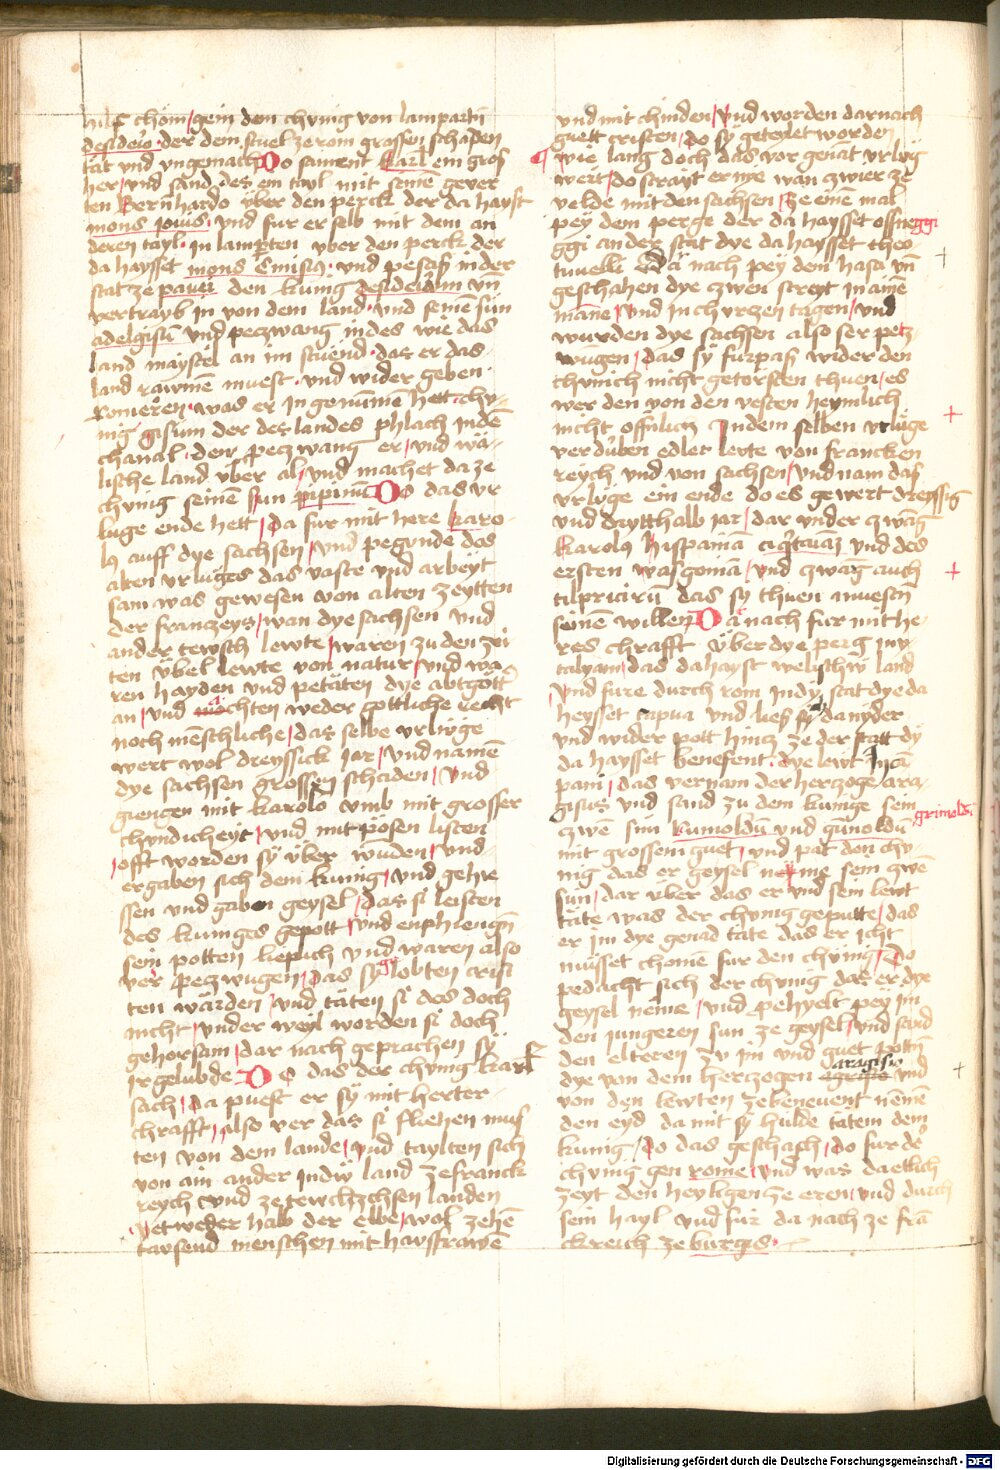 hilf chom / gein den chvnig von lampartñ
desideio · der dem stuel ze rom grossen schaden
tät vnd vngemach Do sament karl ein gros
her / vnd sand des ein tayl mit seinē gever
ten Bernhardo vber den perck der da hayst
mons iovis · vnd fur er selb mit dem an
deren tayl · in lamparten vber den perck der
da haysset mons Cinisiꝰ · vnd pesass in der
stat ze pauei den kunig desideium vn̄
vertrayb in von dem land · vnd seinē sun
adelgisū vnd peczwang in des wie das
land maystel an im stuend · das er das
land rawme muest · vnd wider geben
Romeren · was er in genūme hett · chv
nig gisum der des landes phlach in dē
chanal · den peczwang er / vnd wä
lische land vber al / vnd machet da ze
chvnig seinē sun pipinū Do das vr
luge ende hett / Da fur mit here karo
lꝰ auff dye sachsen / vnd pegunde des
alten vrluges das vaste vnd arbeyt
sam was gewesen von alten zeytten
der franzeys / wan dye sachsen vnd
ander tewsch lewte / waren zu den zei
ten vbel lewte von natur / vnd wa
ren hayden vnd petäten dye abtgott
an / vnd mochten weder gottliche recht
noch mēschliche / das selbe vrluge
wert wol dreyssick Jar / vnd namē
dye sachsen grossen schaden / vnd
giengen mit karolo vmb mit grosser
chvndicheyt / vnd mit posen listen
offt worden sy vber wuden / vnd
ergaben sich dem kunig / vnd gehie
ssen vnd gaben geysel / das si leisten
des kuniges gepott / vnd enphiengn
sein potten liepach vnd waren also
ver peczwugen / das sy globten crist
ten wärden / vnd täten si des doch
nicht / vnder weyl worden si doch
gehorsam / dar nach geprachen sy
ir gelubde Do das der chvnig karl
sach / Da puest er sy mit herter
chrafft / also ver das si fliehen mus
ten von dem lande / vnd taylten sich
von ain ander in diw land ze franck
reych vnd ze tewchzchsen landen
yetweder halb der elbe / wol zehē
tawsend menschen mit hawsfrawē
vnd mit chinden / vnd worden darnach
guett cristen / do sy geteylet worden
wie lang doch das vor genāt vrlvg
wert / do strayt er nye wan zwier ze
velde mit den sachsen / ze einē mal
pey dem perge der da haysset offne ggi
ggi an der stat dye da haysset theo
tuvelli Dä nach pey dem hasa vn̄
geschahen dye zwen streyt in aine
māne / vnd in churzen tagen / vnd
wurden dye sachsen also ser pecz
wūgen / das sy furpass wider den
chvnich nicht getorsten thuen / es
wer den von den vesten heymlich
nicht offnlich In dem selben vrluge
verduben edler lewte von francken
reych vnd von sachsen / vnd nam das
vrloge ein ende do es gewert dreyssig
vnd drytthalb iar / dar vnder zwāg
karolꝰ hispaniā vnd des
ersten wasgoniā / vnd zwāg auch
das sy thuen muestn
seinē willen Dä nach fur mit he
res chrafft vber dye perg in y
talyam / das da hayst welischw land
vnd fure durch rom in dy stat dye da
heysset capua vnd lies sy da nyder
vnd wider pott hincz ze der statt dy
da haysset benefent · dye lewt in cā
pani / das vernam der herczoge ara
gisus vnd sand zu dem kunige sein
zwē sun Rumoldū vnd gimoldū grimoldū
mit grossem guet / vnd pat den chv
nig das er geysel neme sein zwē
sun / dar vber das er vnd sein lewt
täte was der chvnig geputte / das
er im dye genad täte das er icht
muisset chome fur den chvnig / Do
pedacht sich der chvnig das er dye
geysel neme / vnd pehyelt pey im
den iungeren sun ze geysel / vnd sand
den elteren zu im vnd guet pottn
dye von dem herczogen aragiso vnd
von den lewten ze benevent nemē
den eyd da mit sy hulde tätem dem
kunig / Do das geschach / do fur dˢ
chvnig gen rome / vnd was da etlich
zeyt den heyligen ze eren / vnd durch
sein hayl vnd fur da nach ze frā
ckreich ze burgis ·
Digitalisierung gefördert durch die Deutsche Forschungsgemeinschaft - DFG